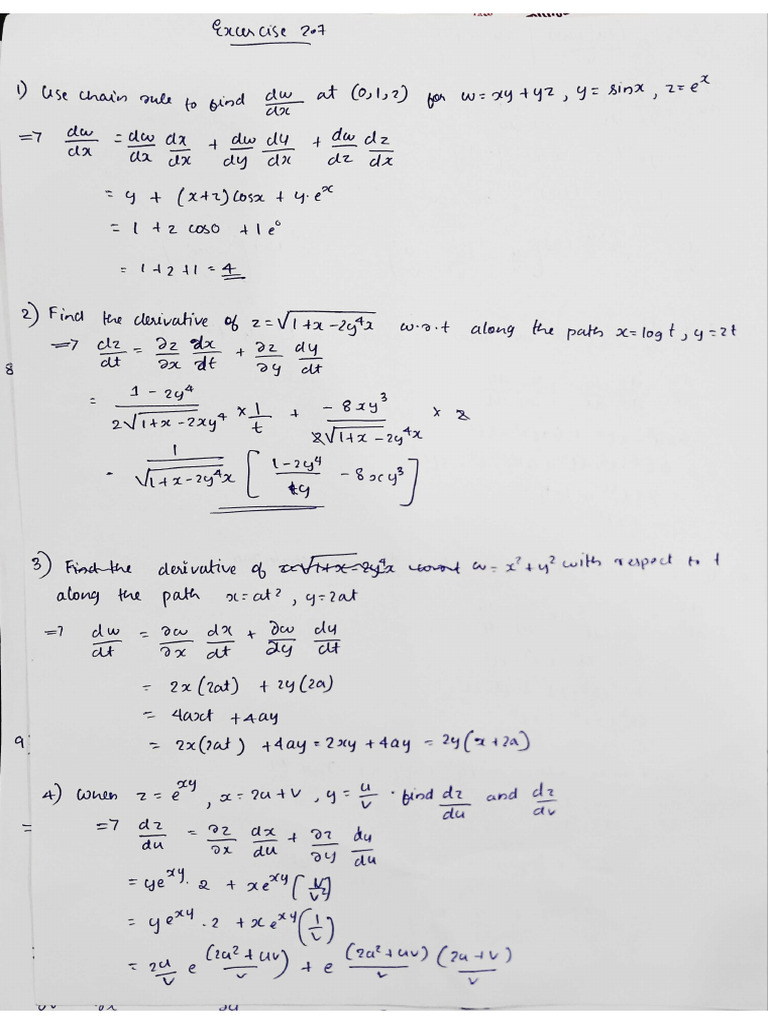 Excercise 2.7
1) Use chain rule to find dw/dx at (0,1,2) for w = xy + yz , y = sinx , z = e^x
=> dw/dx = dw/dx dx/dx + dw/dy dy/dx + dw/dz dz/dx
= y + (x+z) cosx + y. e^x
= 1 + 2 cos0 + 1 e^0
= 1+2+1 = 4
2) Find the derivative of z = √(1+x-2y^4x) w.r.t along the path x = log t , y = 2t
=> dz/dt = ∂z/∂x dx/dt + ∂z/∂y dy/dt
8
= (1 - 2y^4)/(2√(1+x-2xy^4)) × 1/t + (-8xy^3)/(2√(1+x-2y^4x)) × 2
= 1/√(1+x-2y^4x) [ (1-2y^4)/ty - 8xy^3 ]
3) Find the derivative of z=√(1+x-2y^4x) w = x^2+y^2 with respect to t
along the path x = at^2 , y = 2at
=> dw/dt = ∂w/∂x dx/dt + ∂w/∂y dy/dt
= 2x(2at) + 2y(2a)
= 4axt + 4ay
9 = 2x(2at) + 4ay = 2xy + 4ay = 2y(x+2a)
4) When z = e^xy , x = 2u+v , y = u/v . find dz/du and dz/dv
=> dz/du = ∂z/∂x dx/du + ∂z/∂y dy/du
= ye^xy. 2 + xe^xy (v/v^2)
= ye^xy . 2 + xe^xy (1/v)
= 2u/v e^((2u^2+uv)/v) + e^((2u^2+uv)/v) (2u+v)/v